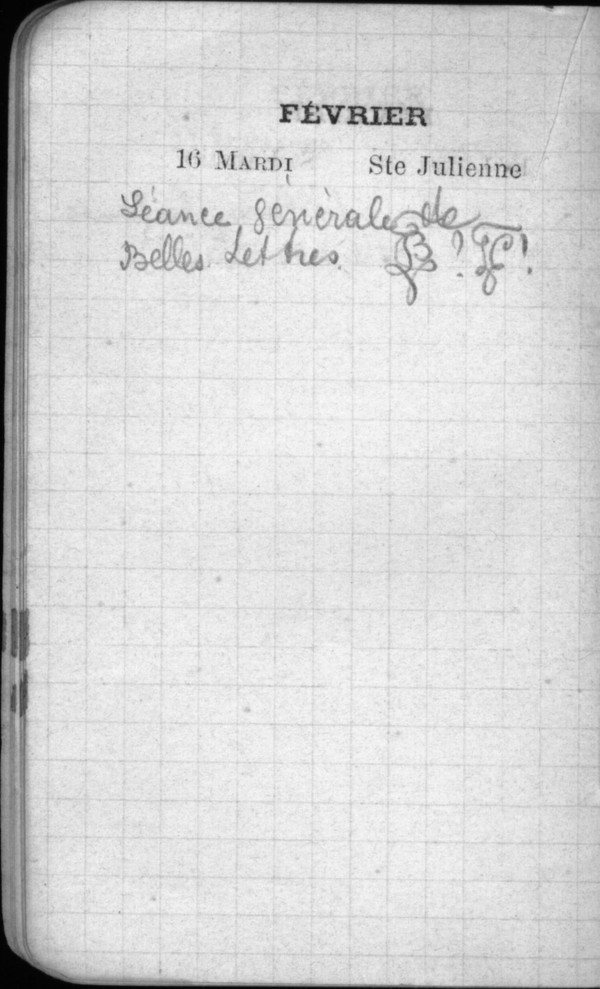 FÉVRIER
16 MARDI Ste Julienne
Séance générale de
Belles Lettres.